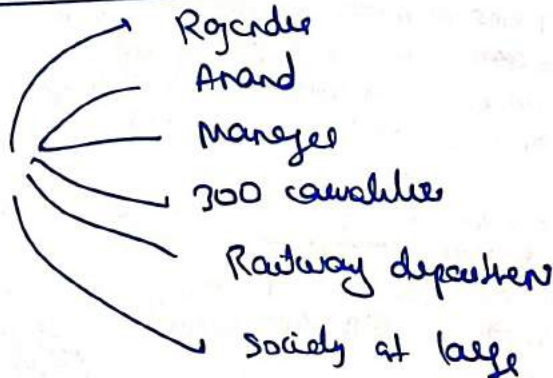 Rajender
Anand
Manager
300 casualties
Railway department
Society at large